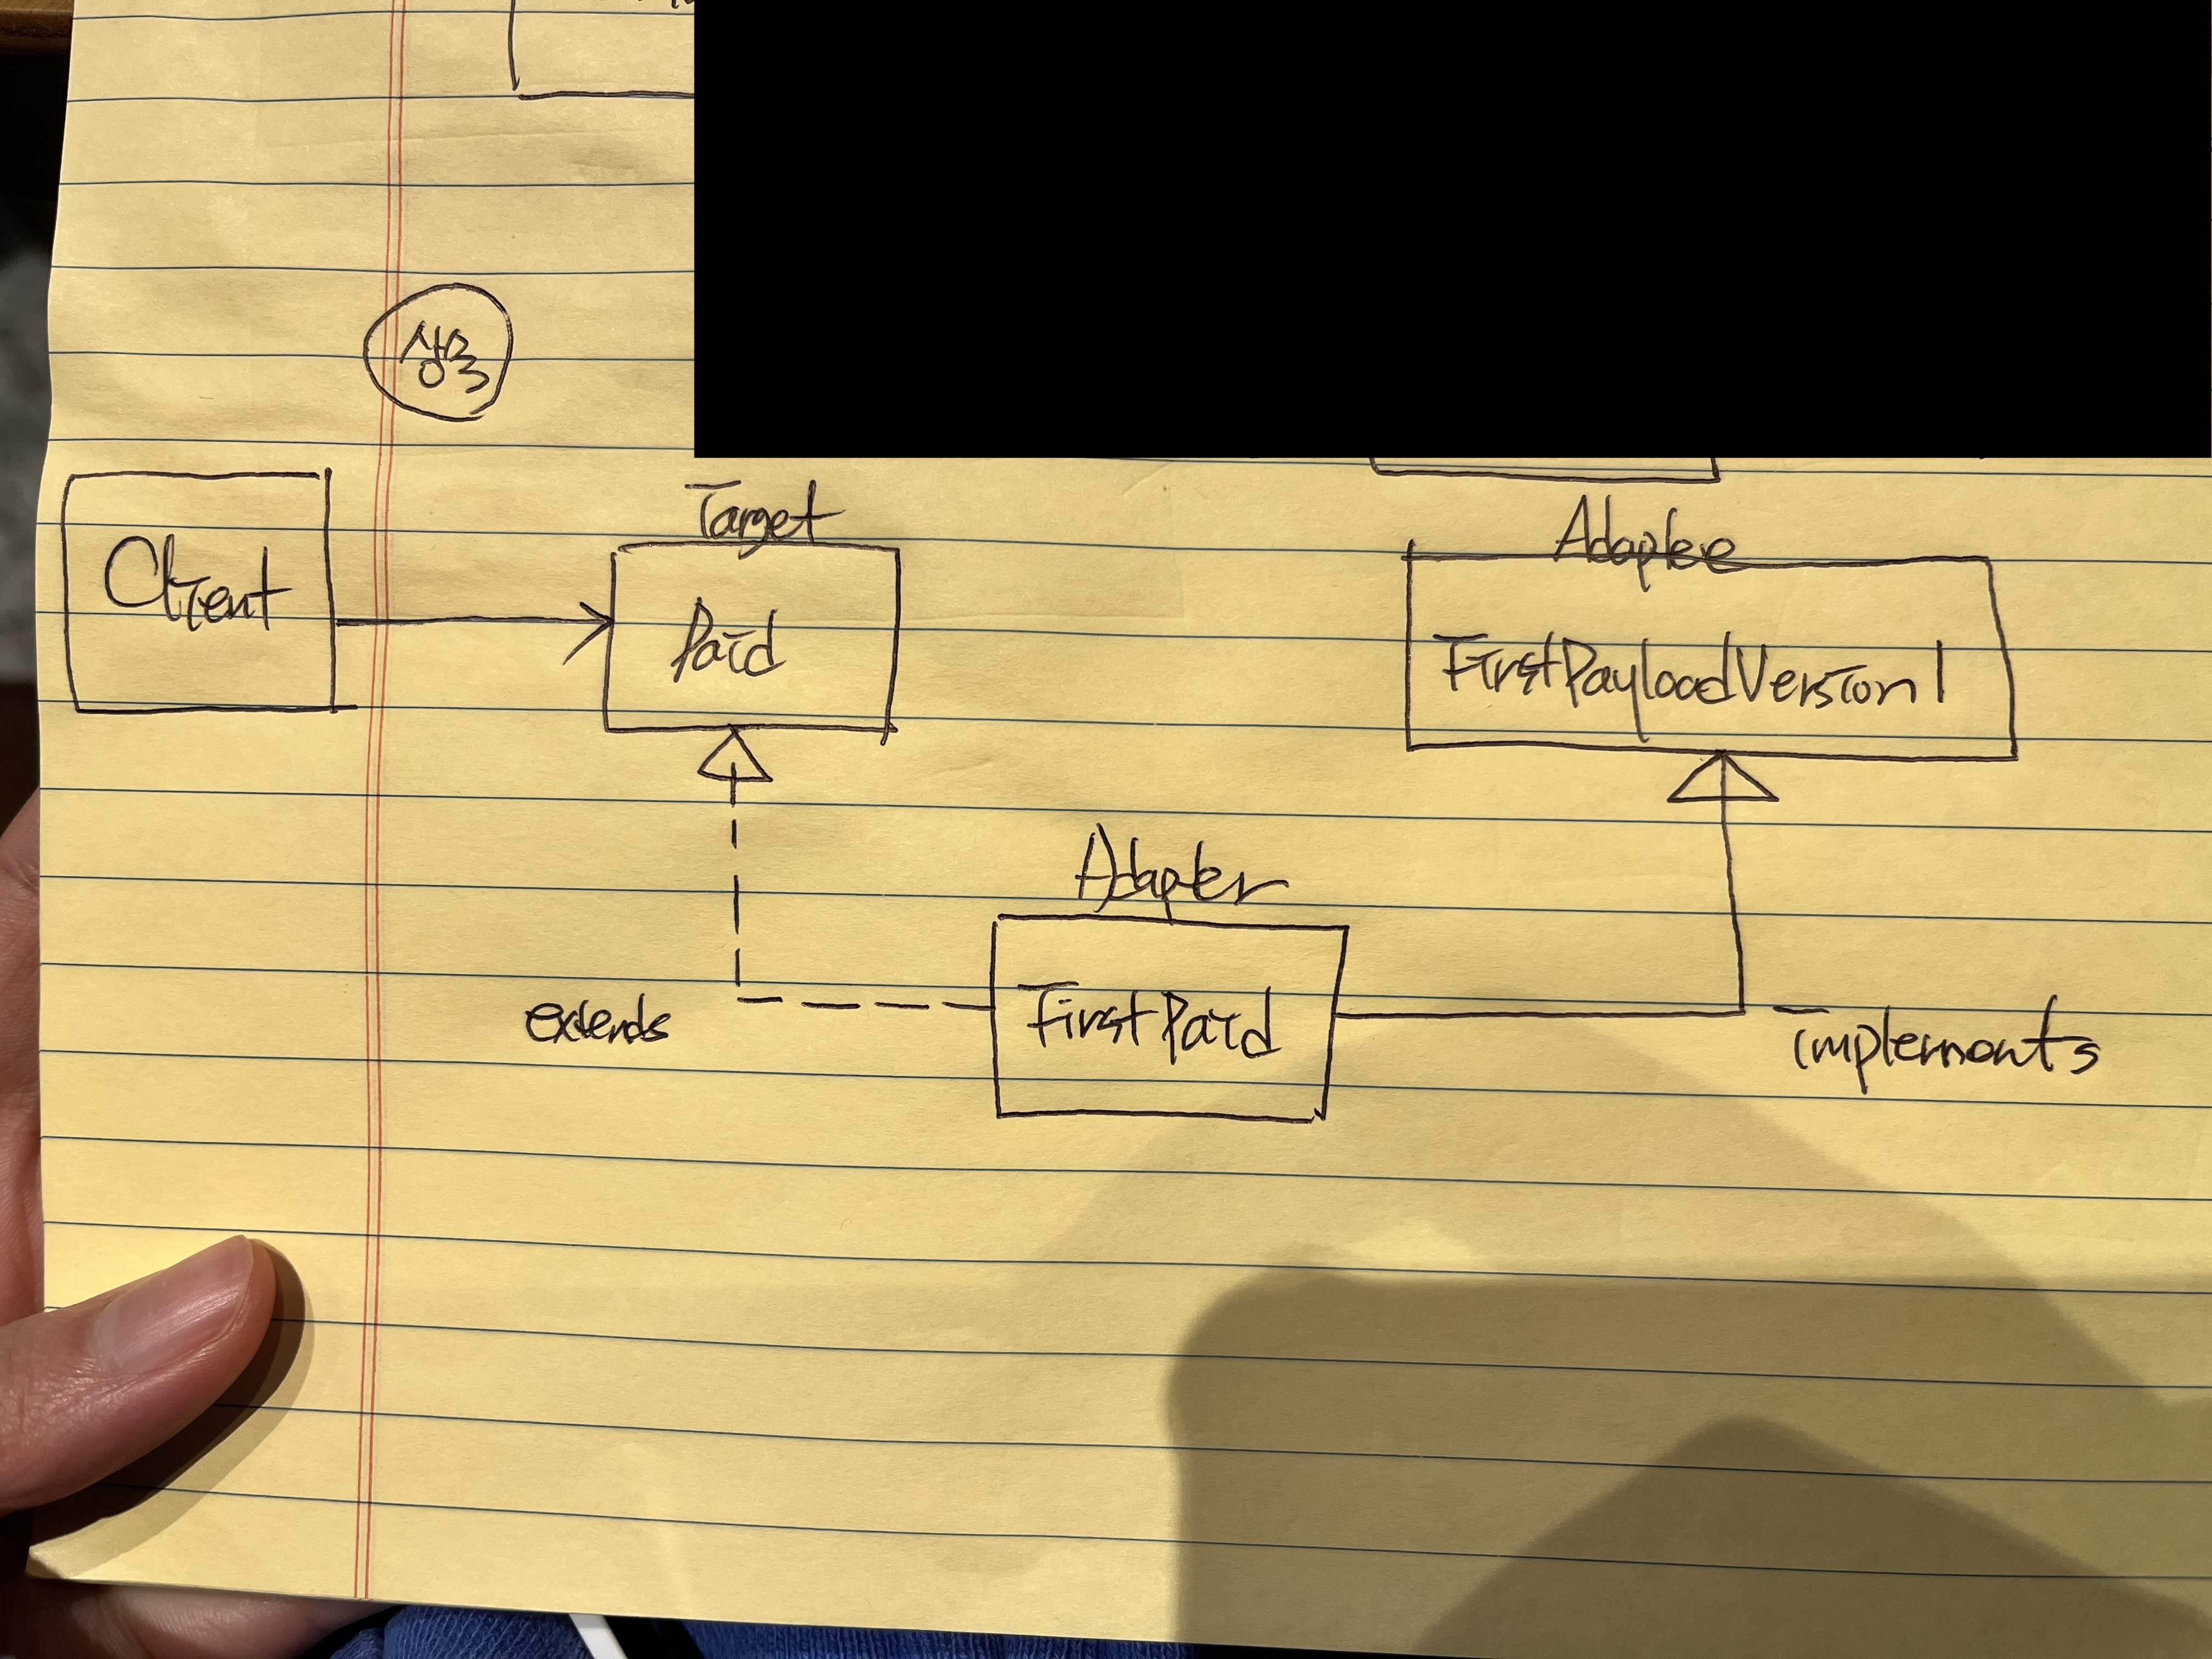 상속
Client
Target
Paid
Adaptee
FirstPayloadVersion1
Adapter
FirstPaid
extends
implements